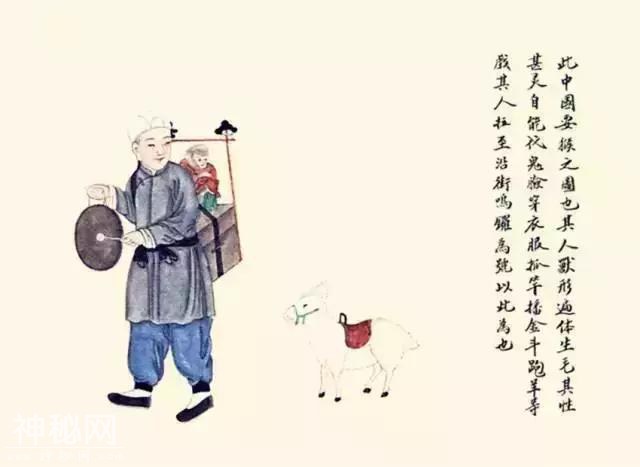 此中國耍猴之圖也其人獸形遍体生毛其性
甚灵自能代鬼臉穿衣服抓竿播金斗跑羊等
戲其人拉至沿街鳴鑼為號以此為也
神秘网